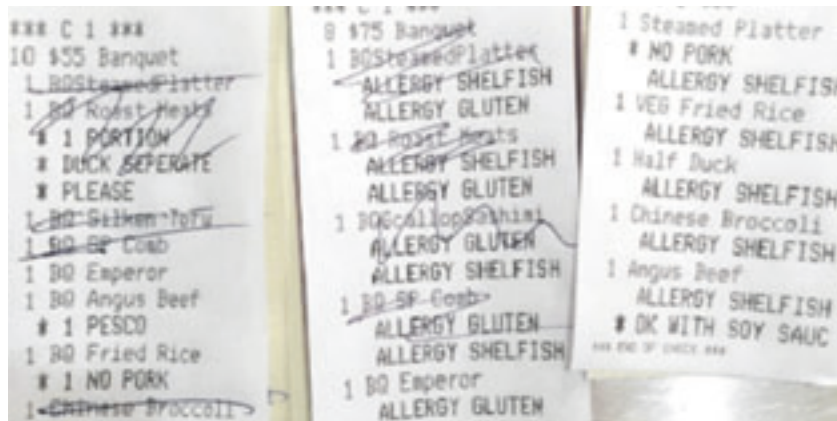 *** C 1 ***
10 $55 Banquet
1 BQSteamedPlatter
1 BQ Roast Meats
* 1 PORTION
* DUCK SEPERATE
* PLEASE
1 BQ Silken Tofu
1 BQ SP Comb
1 BQ Emperor
1 BQ Angus Beef
* 1 PESCO
1 BQ Fried Rice
* 1 NO PORK
1 Chinese Broccoli
*** C 1 ***
8 $75 Banquet
1 BQSteamedPlatter
ALLERGY SHELFISH
ALLERGY GLUTEN
1 BQ Roast Meats
ALLERGY SHELFISH
ALLERGY GLUTEN
1 BQScallopSashimi
ALLERGY GLUTEN
ALLERGY SHELFISH
1 BQ SP Comb
ALLERGY GLUTEN
ALLERGY SHELFISH
1 BQ Emperor
ALLERGY GLUTEN
1 Steamed Platter
* NO PORK
ALLERGY SHELFISH
1 VEG Fried Rice
ALLERGY SHELFISH
1 Half Duck
ALLERGY SHELFISH
1 Chinese Broccoli
ALLERGY SHELFISH
1 Angus Beef
ALLERGY SHELFISH
* OK WITH SOY SAUC
*** END OF CHECK ***